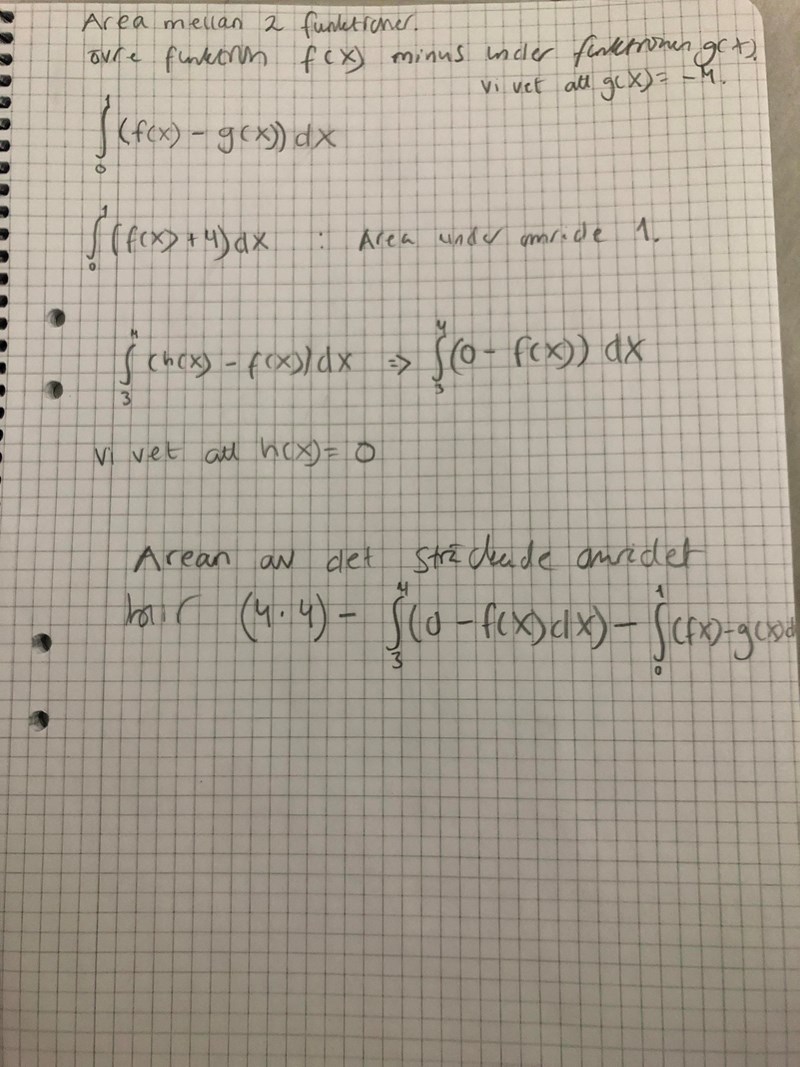 Area mellan 2 funktioner.
övre funktion f(x) minus under funktionen g(x).
vi vet att g(x) = -4.
∫₀¹ (f(x) - g(x)) dx
∫₀¹ (f(x) + 4) dx : Area under område 1.
∫₃⁴ (h(x) - f(x)) dx => ∫₃⁴ (0 - f(x)) dx
vi vet att h(x) = 0
Arean av det sträckade området
blir (4·4) - ∫₃⁴ (0 - f(x) dx) - ∫₀¹ (f(x) - g(x) d